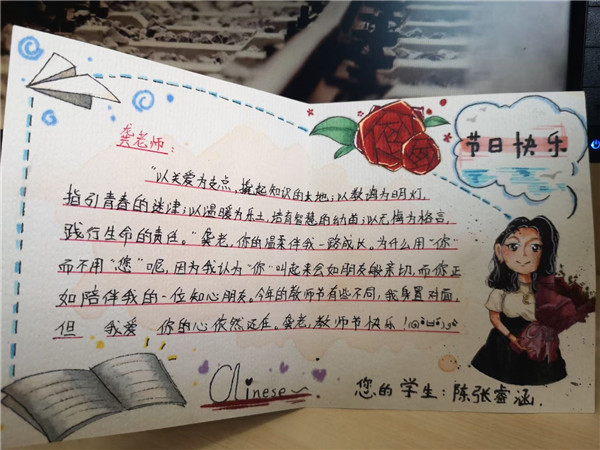 节日快乐
龚老师：
"以关爱为支点，撬起知识的大地；以教诲为明灯，
指引青春的迷津；以温暖为乐土，培育智慧的幼苗；以无悔为格言，
践行生命的责任。"龚老，你的温柔伴我一路成长。为什么用"你"
而不用"您"呢，因为我认为"你"叫起来会如朋友般亲切，而你正
如陪伴我的一位知心朋友。今年的教师节有些不同，我身置对面。
但 我爱 你的心依然还在。龚老，教师节快乐！
Chinese~
您的学生：陈张睿涵.